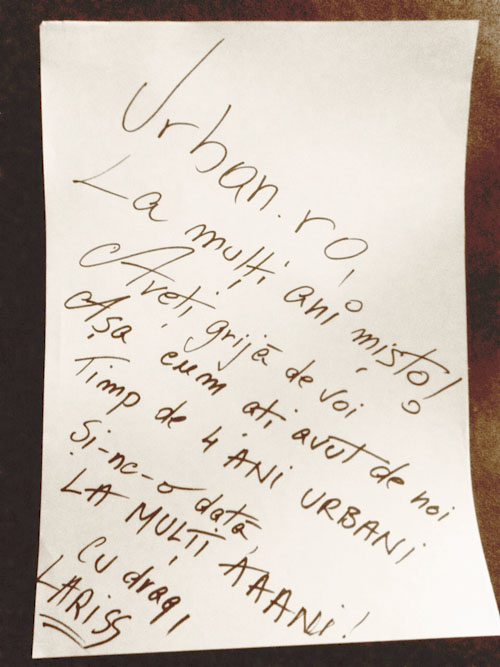 Urban.ro,
La mulți ani mișto!
Aveți grijă de voi
Așa cum ați avut de noi
Timp de 4 ANI URBANI
Și-nc-o dată,
LA MULȚI AAANi!
Cu drag,
LARISS